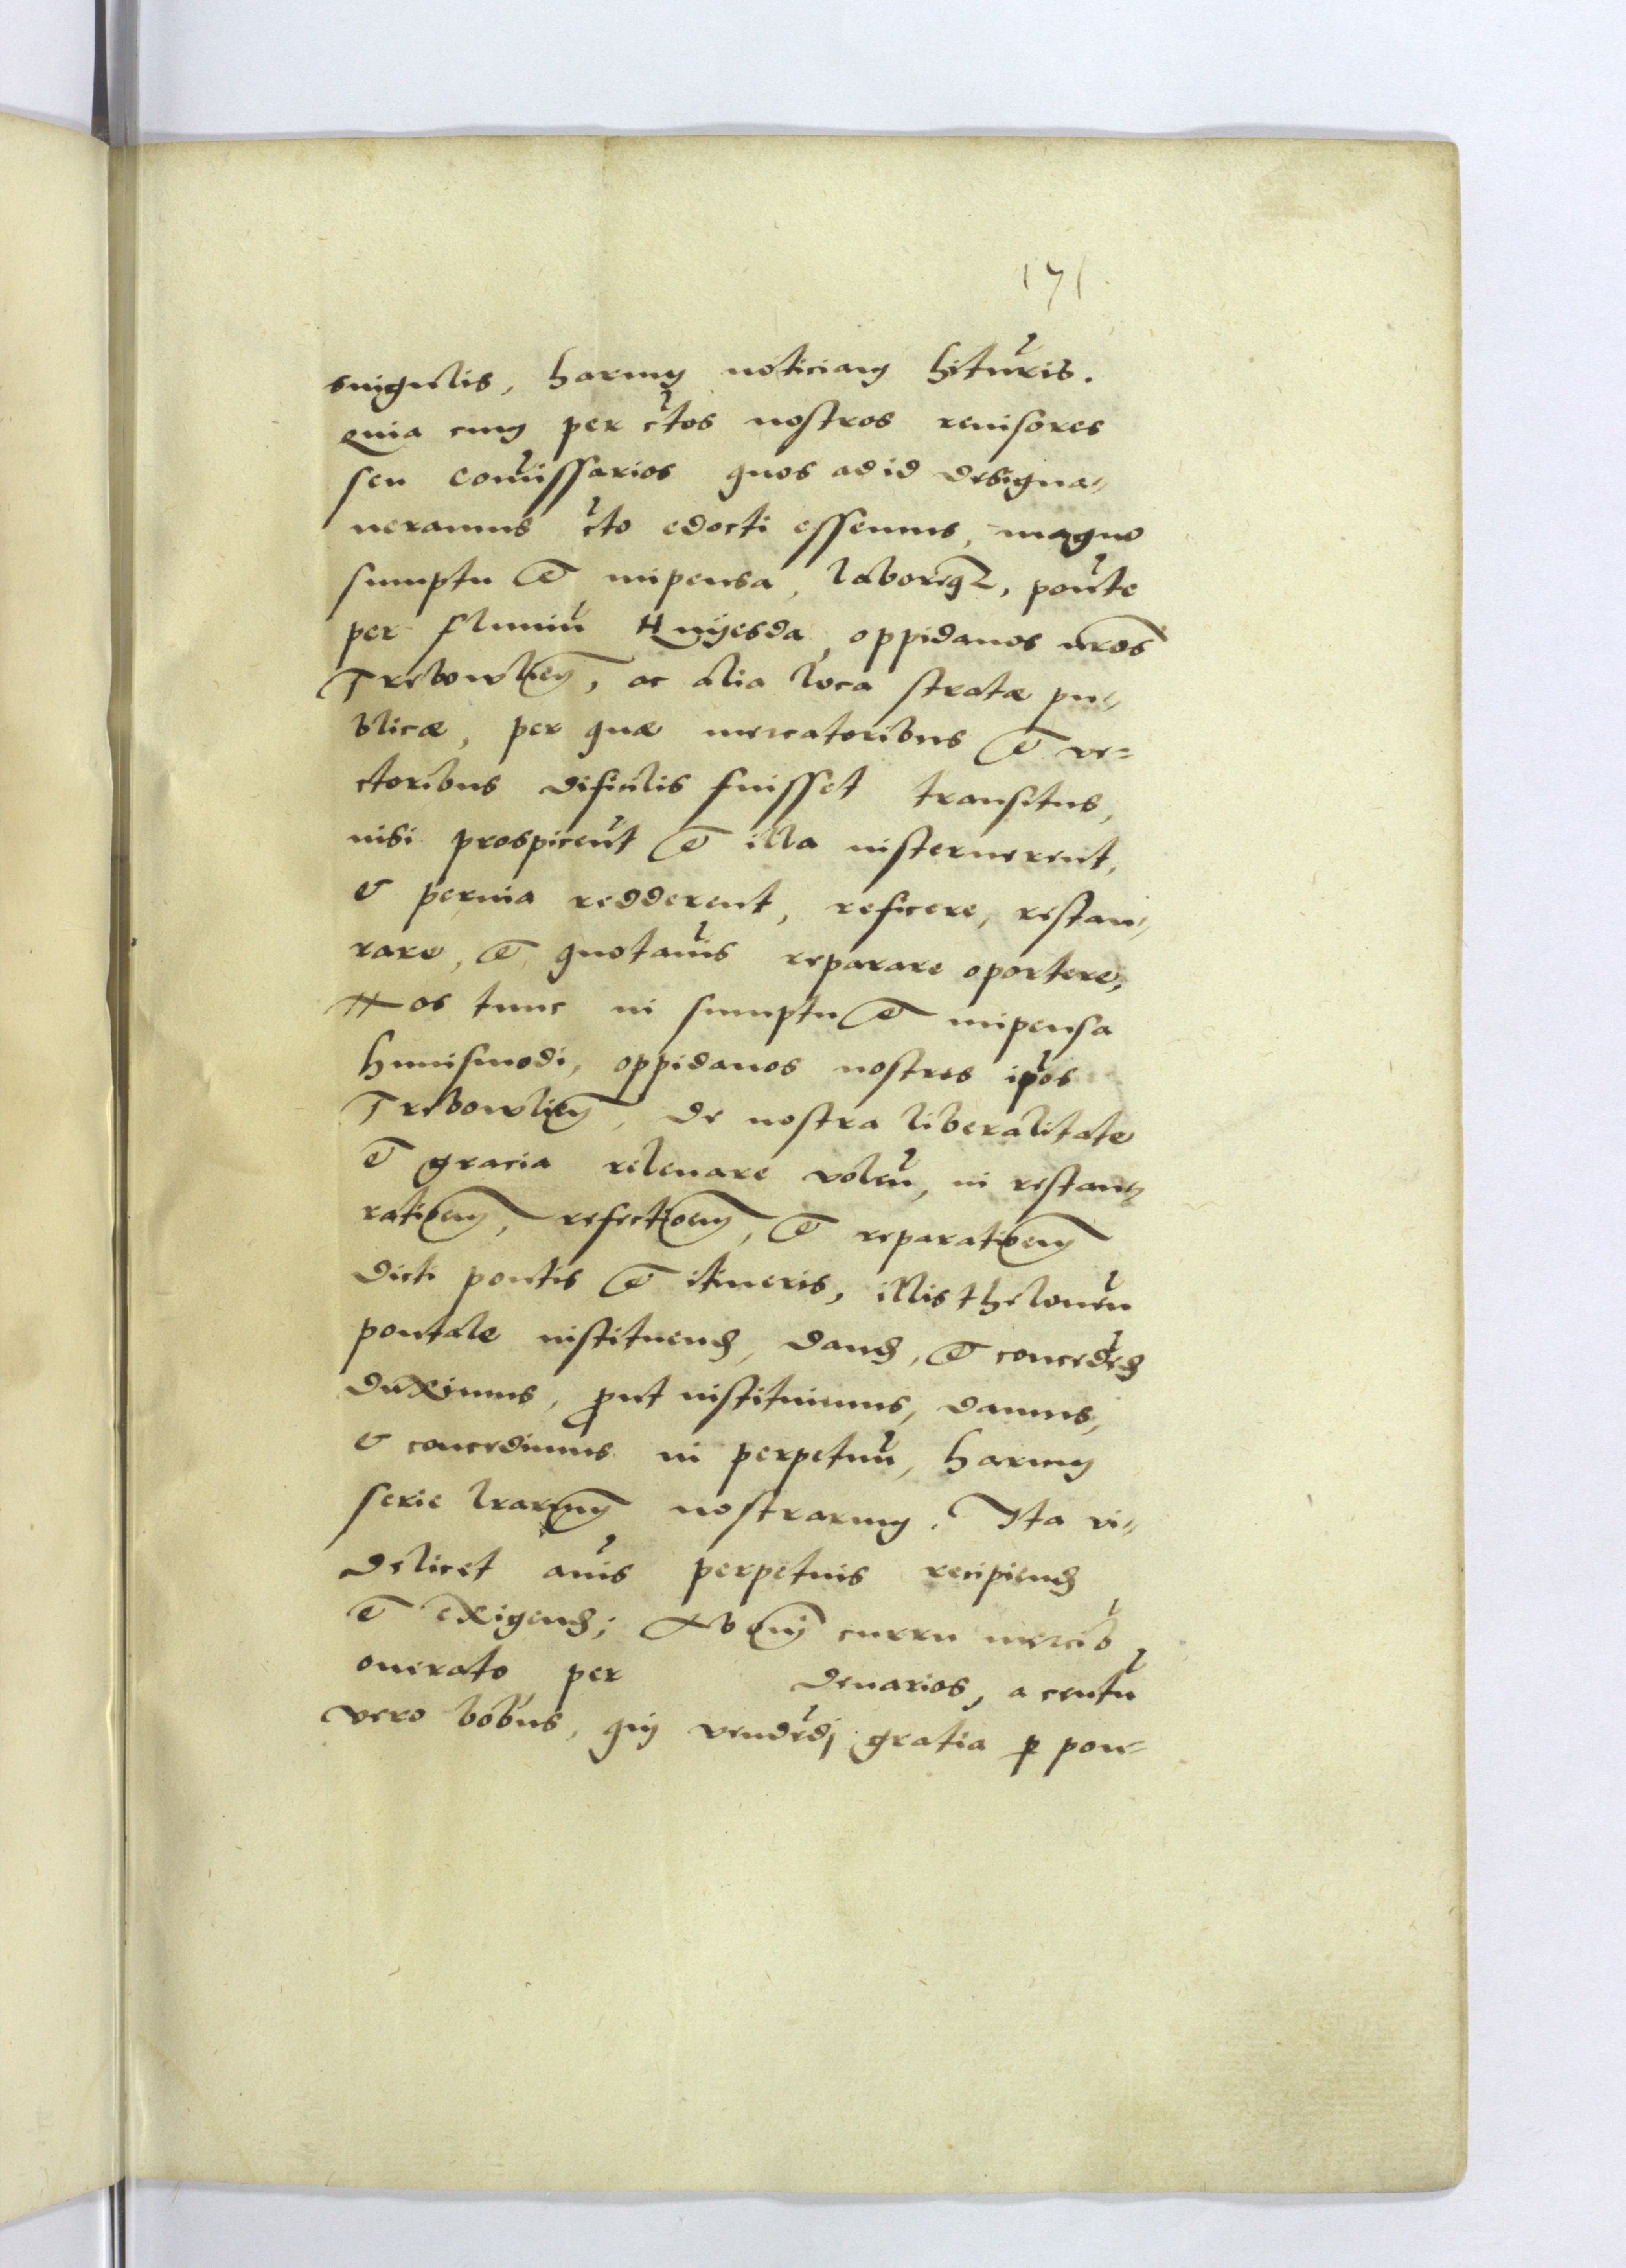 171.
singulis, harum noticiam hituris.
Quia cum per ctos nostros reuisores
seu comissarios quos ad id designa-
ueramus cto edocti essemus, magno
sumptu et impensa, laboreq, ponte
per fluuiu Hnyesda, oppidanos nros
Trebowlien, ac alia loca stratæ pu-
blicæ, per quæ mercatoribus et ve-
ctoribus dificilis fuisset transitus,
nisi prospicerent et illa insternerent,
et peruia redderent, reficere, restau-
rare, et quotanis reparare oportere,
Nos tunc in sumptu et impensa
huiusmodi, oppidanos nostros ipos
Trebowlien, de nostra liberalitate
et gracia releuare volen, in restau-
rationem, refectionem, et reparationem
dicti pontis et itineris, illis theloneu
pontale instituend, dand, et conceded
duximus, put instituimus, damus,
et concedimus in perpetuu, harum
serie lrarum nostrarum. Ita vi-
delicet anis perpetuis recipiend
et exigend; Ab omi curru mercib
onerato per denarios, a centu
vero bobus, qui vendedi gratia p pon-